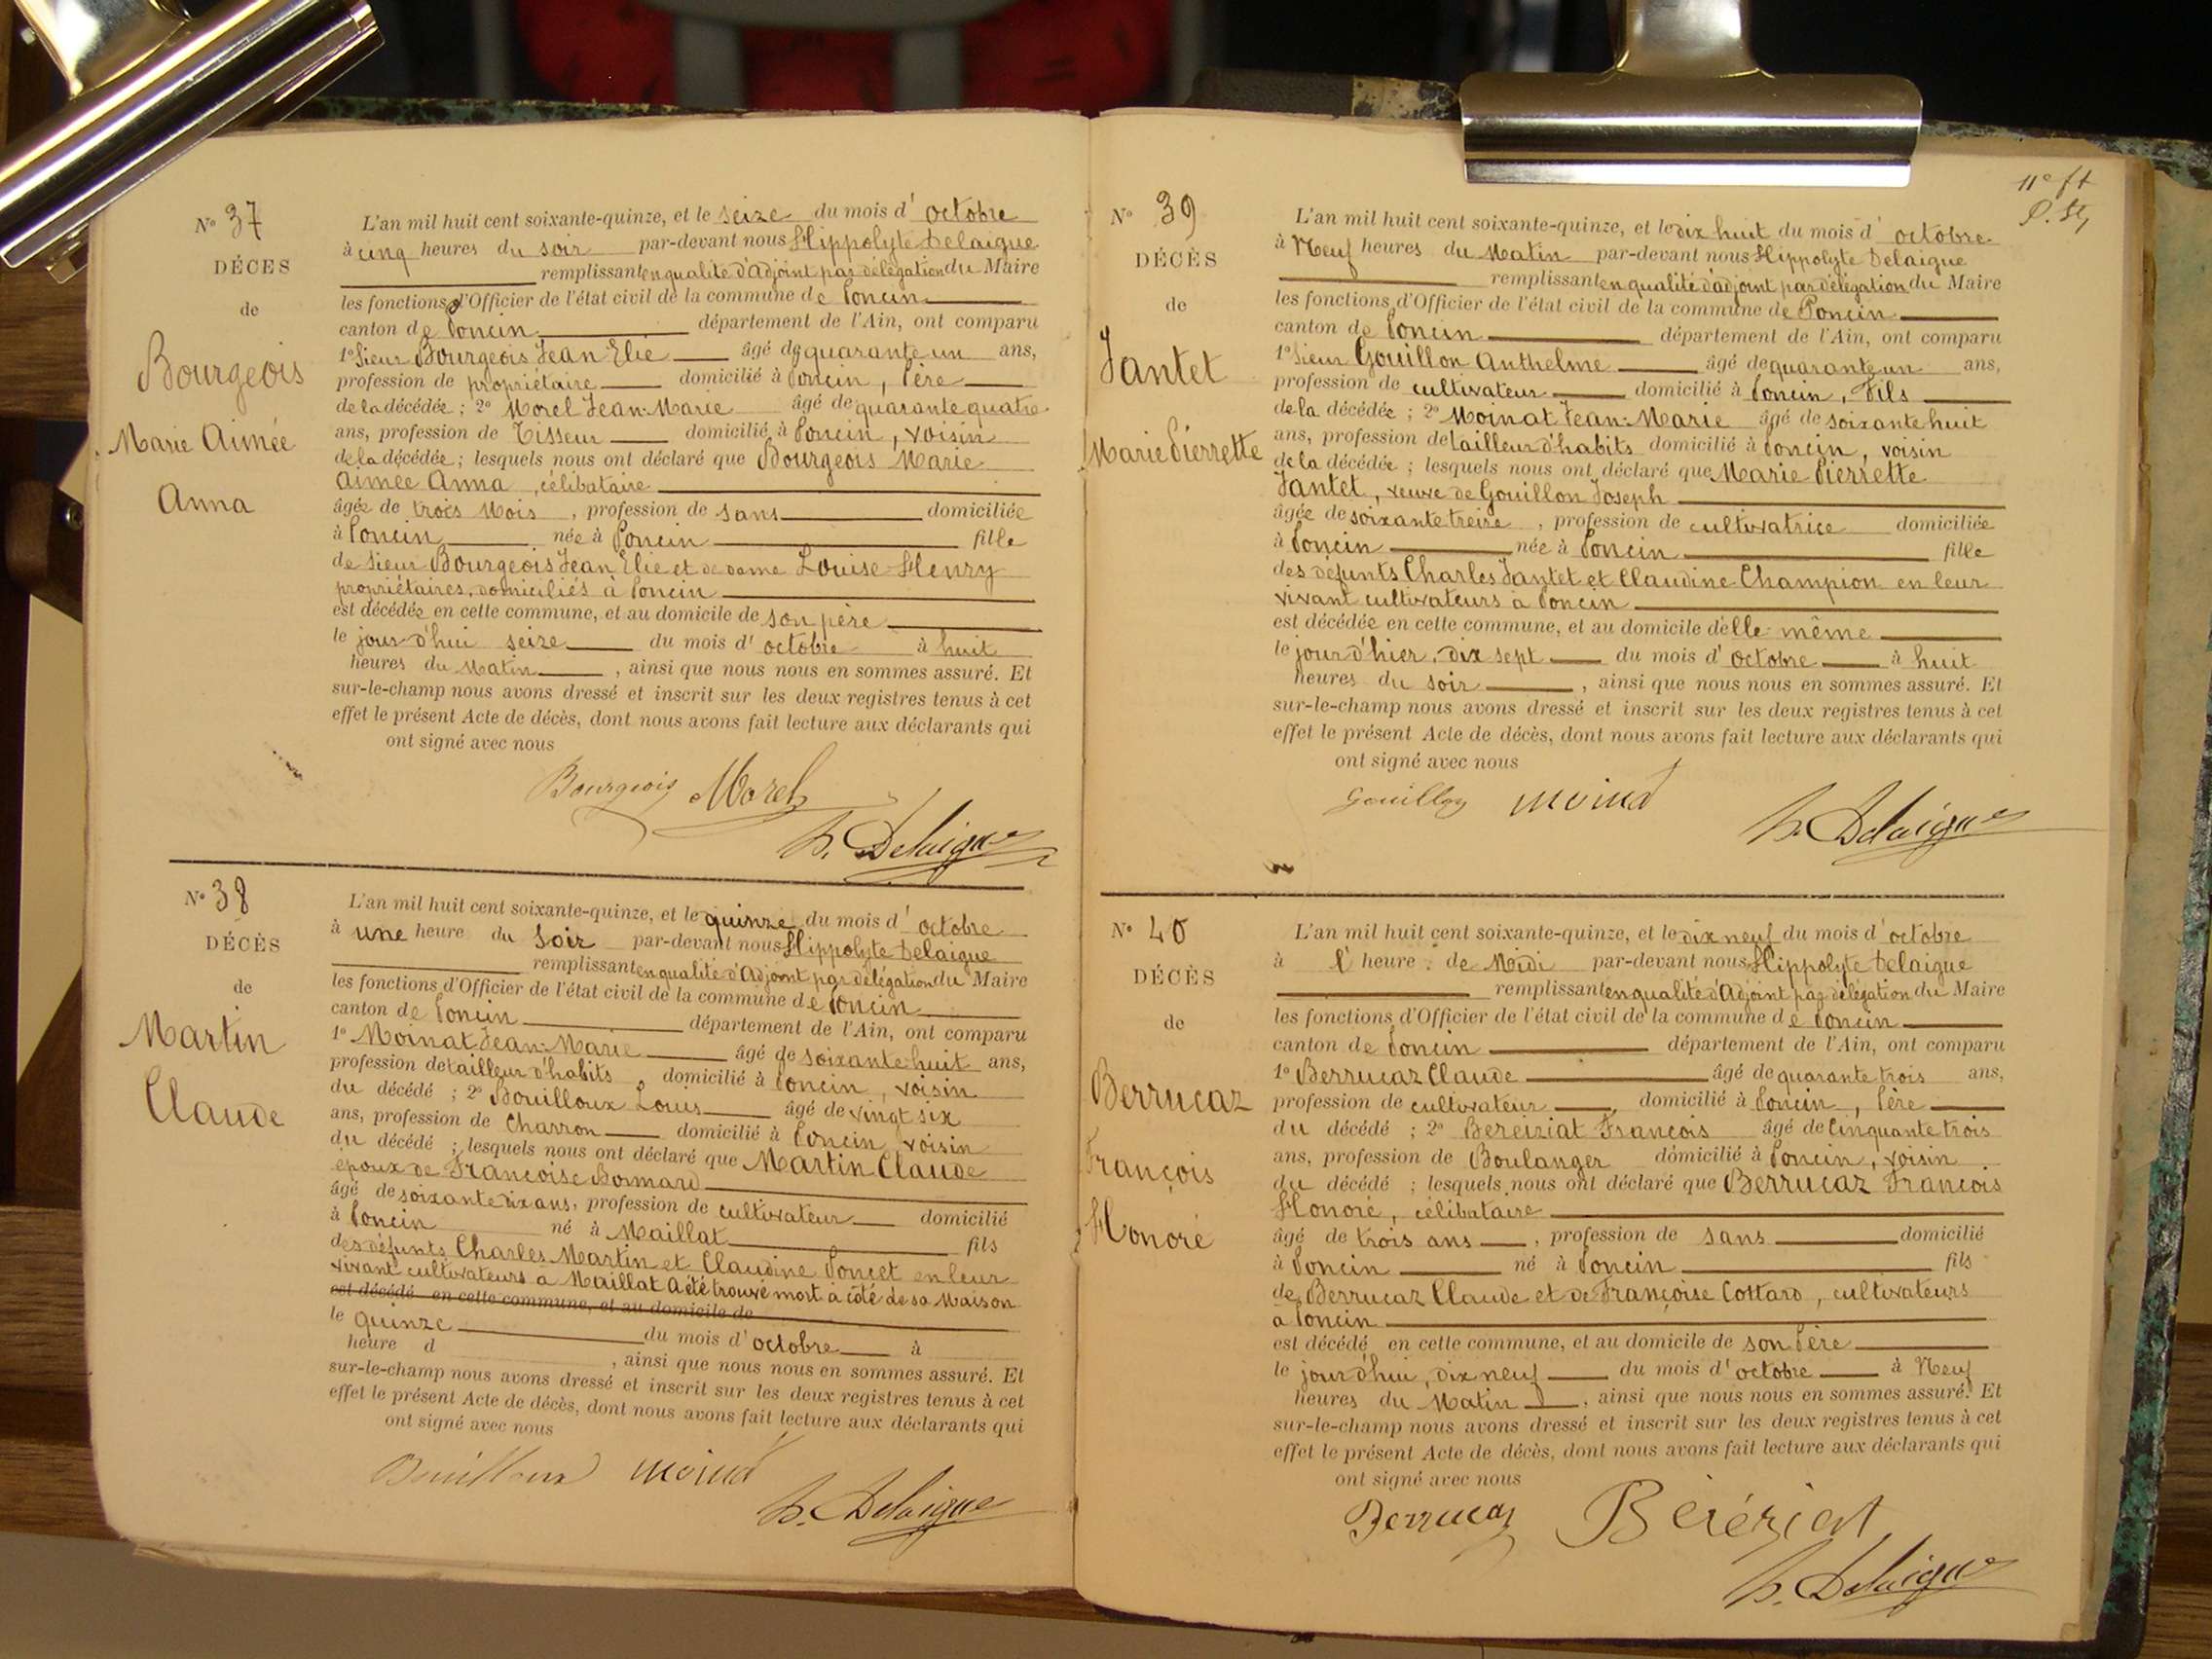 N° 37
DÉCES
de
Bourgeois
Marie Aimée
Anna
L'an mil huit cent soixante-quinze, et le seize du mois d' octobre
à cinq heures du soir par-devant nous Hippolyte Delaigue
remplissant en qualité d'adjoint par délégation du Maire
les fonctions d'Officier de l'état civil de la commune de Poncin
canton de Poncin département de l'Ain, ont comparu
1° Sieur Bourgeois Jean Elie âgé de quarante un ans,
profession de propriétaire domicilié à Poncin, Père
de la décédée ; 2° Morel Jean-Marie âgé de quarante quatre
ans, profession de Tisseur domicilié à Poncin, voisin
de la décédée ; lesquels nous ont déclaré que Bourgeois Marie
Aimée Anna, célibataire
âgée de trois mois, profession de sans domiciliée
à Poncin née à Poncin fille
de Sieur Bourgeois Jean Elie et de dame Louise Henry
propriétaires, domiciliés à Poncin
est décédée en cette commune, et au domicile de son père
le jour d'hui seize du mois d' octobre à huit
heures du Matin, ainsi que nous nous en sommes assuré. Et
sur-le-champ nous avons dressé et inscrit sur les deux registres tenus à cet
effet le présent Acte de décès, dont nous avons fait lecture aux déclarants qui
ont signé avec nous
Bourgeois Morel
h. Delaigue
N° 38
DÉCÈS
de
Martin
Claude
L'an mil huit cent soixante-quinze, et le quinze du mois d' octobre
à une heure du Soir par-devant nous Hippolyte Delaigue
remplissant en qualité d'Adjoint par délégation du Maire
les fonctions d'Officier de l'état civil de la commune de Poncin
canton de Poncin département de l'Ain, ont comparu
1° Moinat Jean-Marie âgé de soixante-huit ans,
profession de tailleur d'habits domicilié à Poncin, voisin
du décédé ; 2° Bouilloux Louis âgé de vingt six
ans, profession de Charron domicilié à Poncin, voisin
du décédé ; lesquels nous ont déclaré que Martin Claude
époux de Françoise Bonnard
âgé de soixante dix ans, profession de cultivateur domicilié
à Poncin né à Maillat fils
des défunts Charles Martin et Claudine Poncet en leur
vivant cultivateurs à Maillat A été trouvé mort à côté de sa Maison
est décédé en cette commune, et au domicile de
le quinze du mois d' octobre à
heure d , ainsi que nous nous en sommes assuré. Et
sur-le-champ nous avons dressé et inscrit sur les deux registres tenus à cet
effet le présent Acte de décès, dont nous avons fait lecture aux déclarants qui
ont signé avec nous
Bouilloux moinat
h. Delaigue
11e ft
N° 39
DÉCÈS
de
Jantet
Marie Pierrette
L'an mil huit cent soixante-quinze, et le dix huit du mois d' octobre
à Neuf heures du Matin par-devant nous Hippolyte Delaigue
remplissant en qualité d'adjoint par délégation du Maire
les fonctions d'Officier de l'état civil de la commune de Poncin
canton de Poncin département de l'Ain, ont comparu
1° Sieur Gouillon Anthelme âgé de quarante un ans,
profession de cultivateur domicilié à Poncin, Fils
de la décédée ; 2° Moinat Jean-Marie âgé de soixante huit
ans, profession de tailleur d'habits domicilié à Poncin, voisin
de la décédée ; lesquels nous ont déclaré que Marie Pierrette
Jantet, veuve de Gouillon Joseph
âgée de soixante treize, profession de cultivatrice domiciliée
à Poncin née à Poncin fille
des défunts Charles Jantet et Claudine Champion en leur
vivant cultivateurs à Poncin
est décédée en cette commune, et au domicile d'elle même
le jour d'hier, dix sept du mois d' octobre à huit
heures du soir, ainsi que nous nous en sommes assuré. Et
sur-le-champ nous avons dressé et inscrit sur les deux registres tenus à cet
effet le présent Acte de décès, dont nous avons fait lecture aux déclarants qui
ont signé avec nous
Gouillon moinat
h. Delaigue
N° 40
DÉCÈS
de
Berrucaz
François
Honoré
L'an mil huit cent soixante-quinze, et le dix neuf du mois d' octobre
à l' heure de Midi par-devant nous Hippolyte Delaigue
remplissant en qualité d'Adjoint par délégation du Maire
les fonctions d'Officier de l'état civil de la commune de Poncin
canton de Poncin département de l'Ain, ont comparu
1° Berrucaz Claude âgé de quarante trois ans,
profession de cultivateur, domicilié à Poncin, Père
du décédé ; 2° Bereiziat François âgé de Cinquante trois
ans, profession de Boulanger domicilié à Poncin, voisin
du décédé ; lesquels nous ont déclaré que Berrucaz François
Honoré, célibataire
âgé de trois ans, profession de sans domicilié
à Poncin né à Poncin fils
de Berrucaz Claude et de Françoise Cottard, cultivateurs
à Poncin
est décédé en cette commune, et au domicile de son Père
le jour d'hui, dix neuf du mois d' octobre à Neuf
heures du Matin, ainsi que nous nous en sommes assuré. Et
sur-le-champ nous avons dressé et inscrit sur les deux registres tenus à cet
effet le présent Acte de décès, dont nous avons fait lecture aux déclarants qui
ont signé avec nous
Berrucaz Beréziat
h. Delaigue